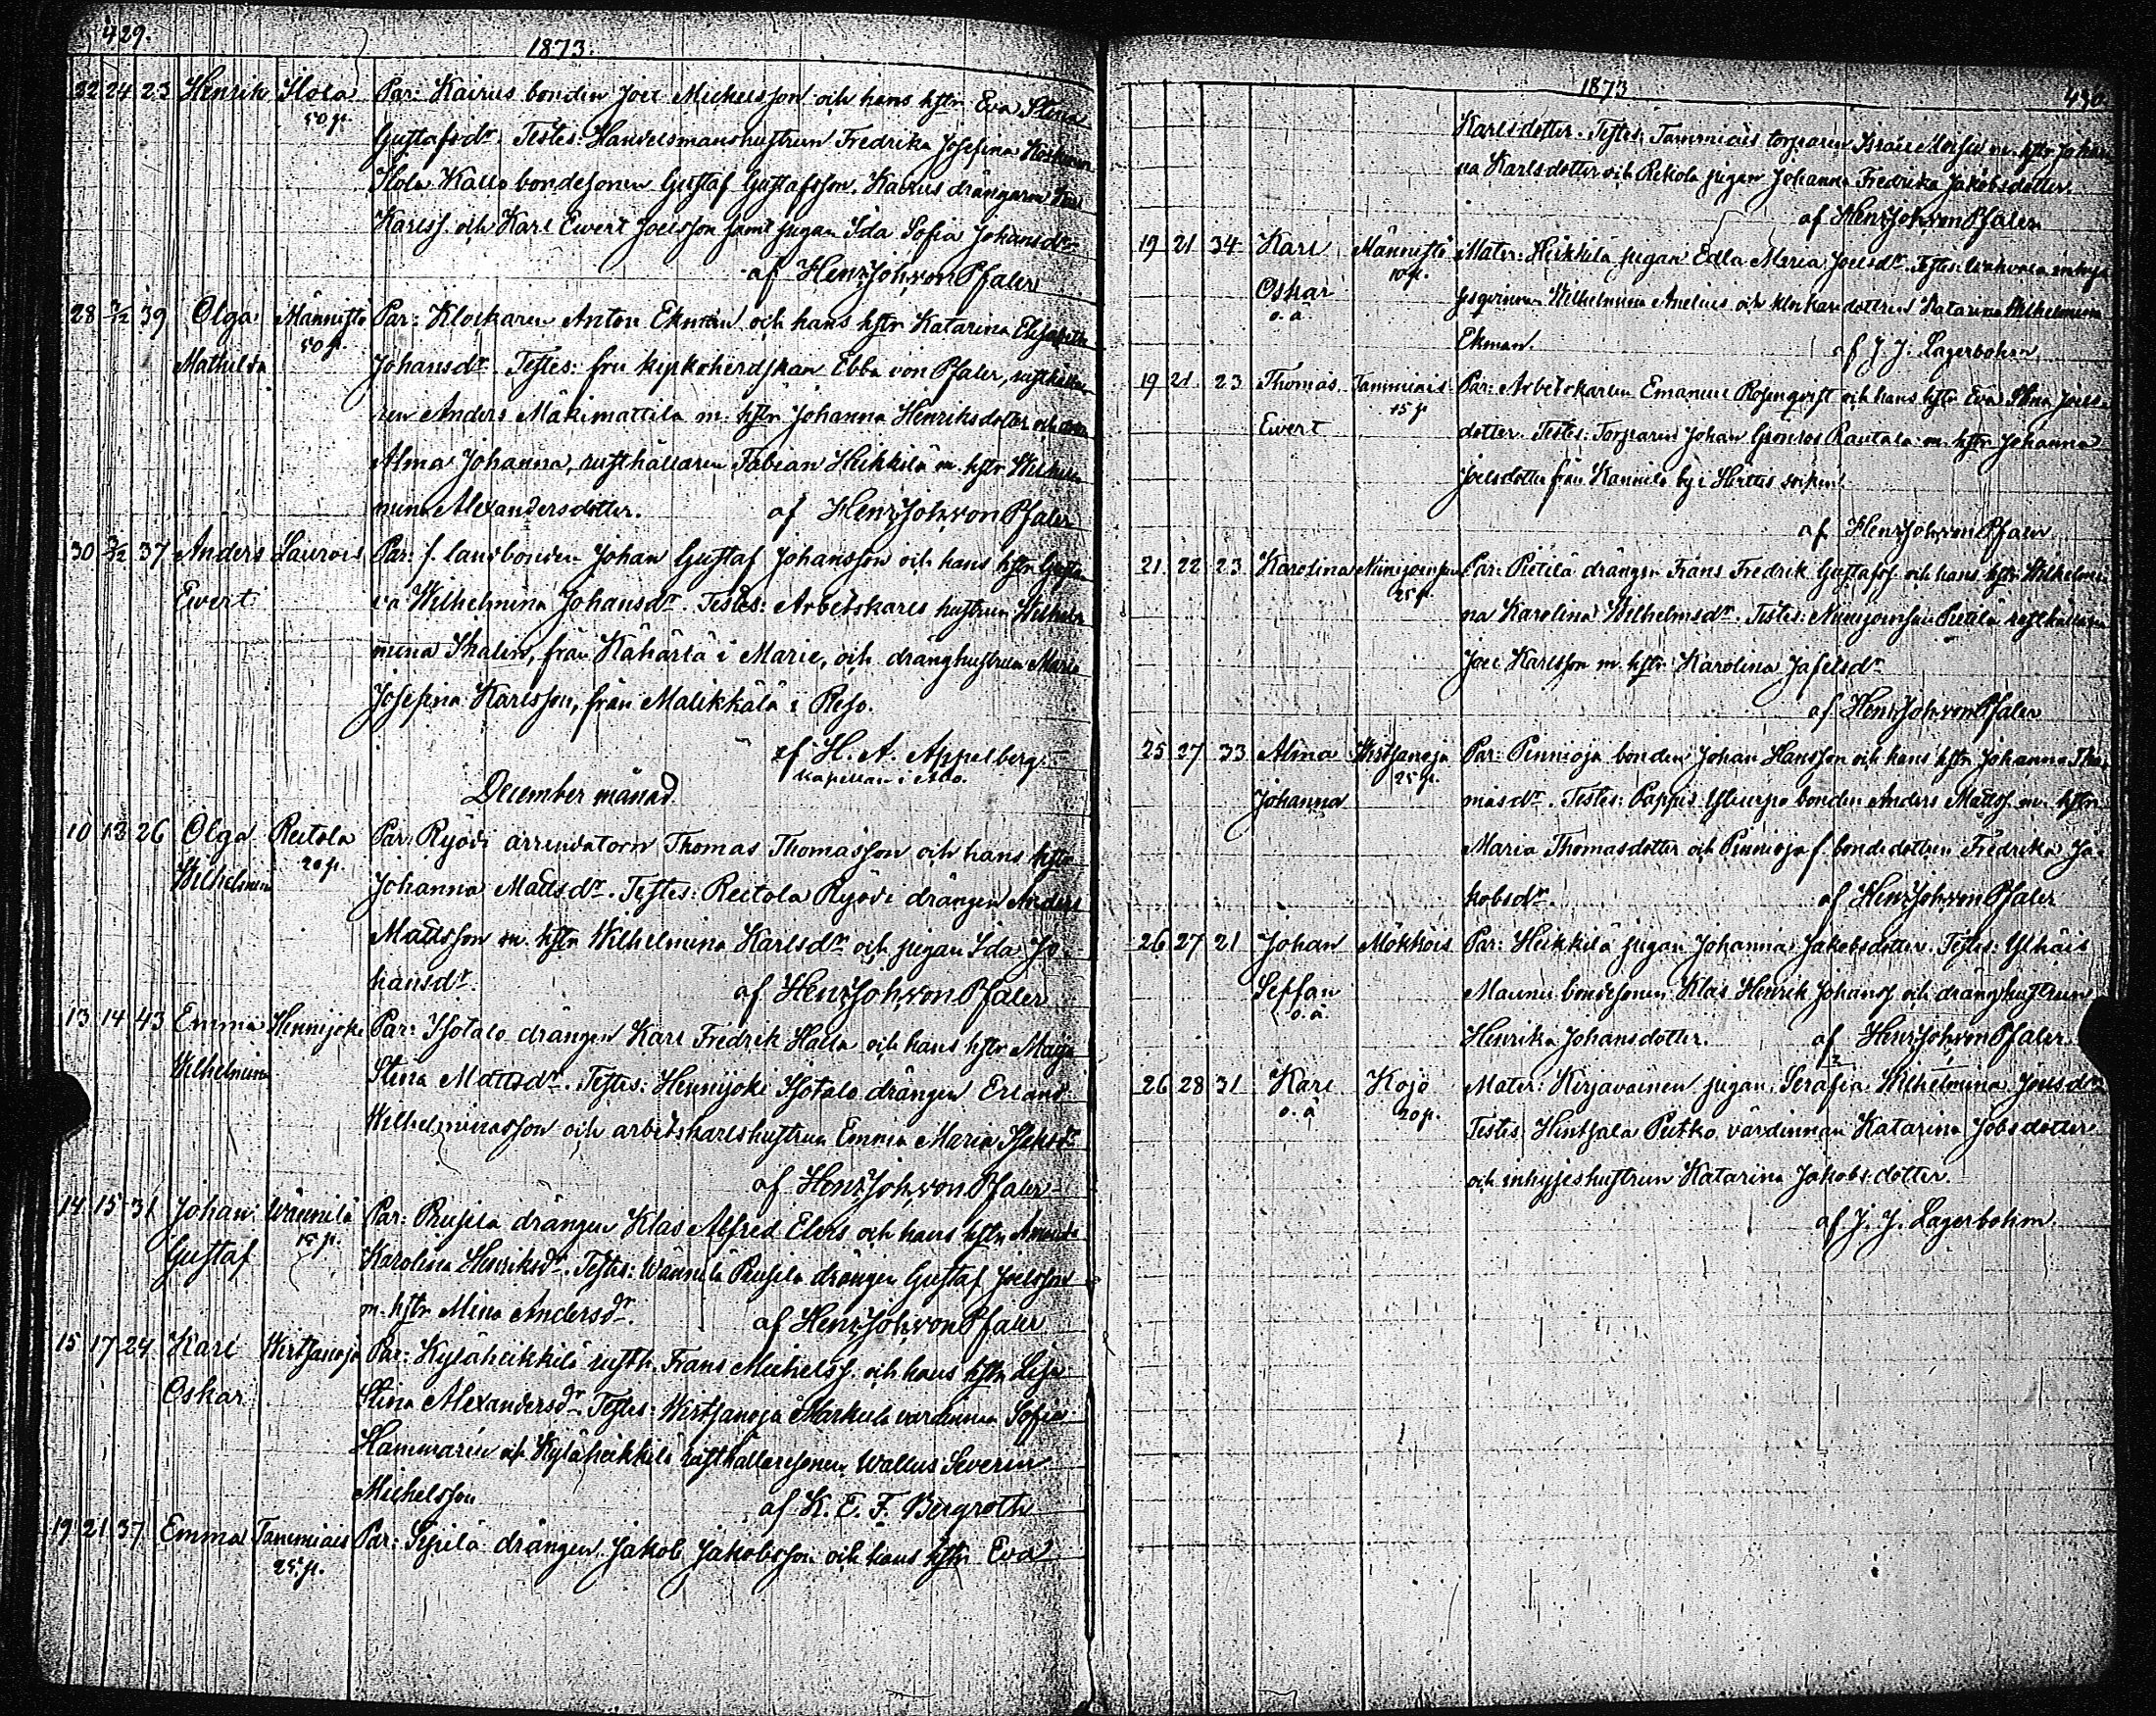 429.
1873.
22 24 23 Henrik Ilola Par: Kairus bonden Joel Michelsson och hans hstr Eva Stina
50 p. Gustafsdr. Testes: Handelsmanshustrun Fredrika Josefina
Ilola Kallo bondesonen Gustaf Gustafsson, Kairus drängarne
Karlss. och Karl Ewert Joelsson samt pigan Ida Sofia Johansdr
af Henr. Joh. von Pfaler
28 2/12 39 Olga Männistö Par: Klockaren Anton Ekman och hans hstr Katarina Elisabeth
Mathilda 50 p. Johansdr. Testes: fru kyrkoherdskan Ebba von Pfaler, rusthålla-
ren Anders Mäkimattila m. hstr Johanna Henriksdotter och
Alma Johanna, rusthållaren Fabian Heikkilä m. hstr Wilhel
mina Alexandersdotter. af Henr. Joh. von Pfaler
30 3/12 37 Anders Laurois Par: f. landbonden Johan Gustaf Johansson och hans hstr Gusta
Ewert va Wilhelmina Johansdr. Testes: Arbetskarls hustrun Wilhel
mina Thalin, från Kähärlä i Marie, och dränghustrun Maria
Josefina Karlsson, från Malikkälä i Reso.
af H. A. Appelberg
kapellan i Åbo.
December månad.
10 13 26 Olga Reitola Par: Ryödi arrendatorn Thomas Thomasson och hans hstr
Wilhelmina 20 p. Johanna Mattsdr. Testes: Reitola Ryödi drängen Anders
Mattsson m. hstr Wilhelmina Karlsdr och pigan Ida Jo-
hansdr. af Henr. Joh. von Pfaler
13 14 43 Emma Hennijoki Par: Isotalo drängen Karl Fredrik Halla och hans hstr Maja
Wilhelmina Stina Mattsdr. Testes: Hennijoki Isotalo drängen Erland
Wilhelminasson och arbetskarlshustrun Emma Maria Isaksdr
af Henr. Joh. von Pfaler
14 15 31 Johan Wännilä Par: Prusila drängen Klas Alfred Elers och hans hstr Amanda
Gustaf 15 p. Karolina Henriksdr. Testes: Wännilä Prusila drängen Gustaf Joelsson
m. hstr Mina Andersdr. af Henr. Joh. von Pfaler
15 17 24 Karl Wirtsanoja Par: Kyläheikkilä rusth. Frans Michelss. och hans hstr Lisa
Oskar Stina Alexandersdr. Testes: Wirtsanoja Markula värdinnan Sofia
Hammarén och Kyläheikkilä rusthållaresonen Wallus Severin
Michelsson af K. E. F. Bergroth
19 21 37 Emma Tammiais Par: Sipilä drängen Jakob Jakobsson och hans hstr Eva
25 p.
1873
430.
Karlsdotter. Testes: Tammiais torparen m. hstr Johan-
na Karlsdotter och Rekola pigan Johanna Fredrika Jakobsdotter.
af Henr. Joh. von Pfaler
19 21 34 Karl Männistö Mater: Heikkilä pigan Edla Maria Joelsdr. Testes:
Oskar 10 p. Wilhelmina Anelius och klockaredottren Katarina Wilhelmina
o. ä. Ekman. af J. J. Lagerbohm
19 21 23 Thomas Tammiais Par: Arbetskarlen Emanuel Rosenqvist och hans hstr Eva Stina Joels-
Ewert 15 p dotter. Testes: Torparen Johan Grönros Rautala m. hstr Johanna
Joelsdotter från Kannila by i socken.
af Henr. Joh. von Pfaler
21 22 23 Karolina Niinijoensuu Par: Pietilä drängen Frans Fredrik Gustafss. och hans hstr Wilhelmi-
25 p. na Karolina Wilhelmsdr. Testes: Niinijoensuu Pietilä rusthållaren
Joel Karlsson m. hstr Karolina Jafetsdr
af Henr. Joh. von Pfaler
25 27 33 Alina Wirtsanoja Par: Pinnioja bonden Johan Hansson och hans hstr Johanna Tho-
Johanna 25 p. masdr. Testes: Pappis bonden Anders Mattss. m. hstr
Maria Thomasdotter och Pinnioja f. bondedottren Fredrika Ja-
kobsdr. af Henr. Joh. von Pfaler
26 27 21 Johan Mökköis Par: Heikkilä pigan Johanna Jakobsdotter. Testes: Yhäis
Seffan Maunu bondesonen Klas Henrik Johanss. och dränghustrun
o. ä. Henrika Johansdotter. af Henr. Joh. von Pfaler
26 28 31 Karl Kojo Mater: Kirjavainen pigan Serafia Wilhelmina Joelsdr
o. ä 20 p. Testes: Hintsala Peitko värdinnan Katarina Jobsdotter
och inhyseshustrun Katarina Jakobsdotter.
af J. J. Lagerbohm.